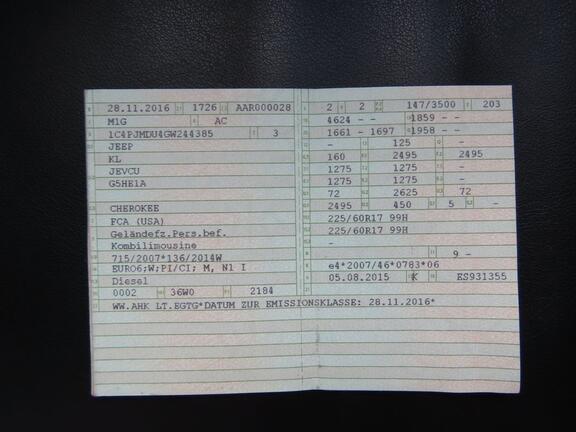 28.11.2016 1726 AAR000028
M1G AC
1C4PJMDU4GW244385 3
JEEP
KL
JEVCU
G5HE1A
CHEROKEE
FCA (USA)
Geländefz.Pers.bef.
Kombilimousine
715/2007*136/2014W
EURO6;W;PI/CI; M, N1 I
Diesel
0002 36W0 2184
2 2 147/3500 203
4624 - - 1859 - -
1661 - 1697 1958 - -
- 125 -
160 2495 2495
1275 1275 -
1275 1275 -
72 2625 72
2495 450 5 -
225/60R17 99H
225/60R17 99H
-
9 -
e4*2007/46*0783*06
05.08.2015 K ES931355
WW.AHK LT.EGTG*DATUM ZUR EMISSIONKLASSE: 28.11.2016*